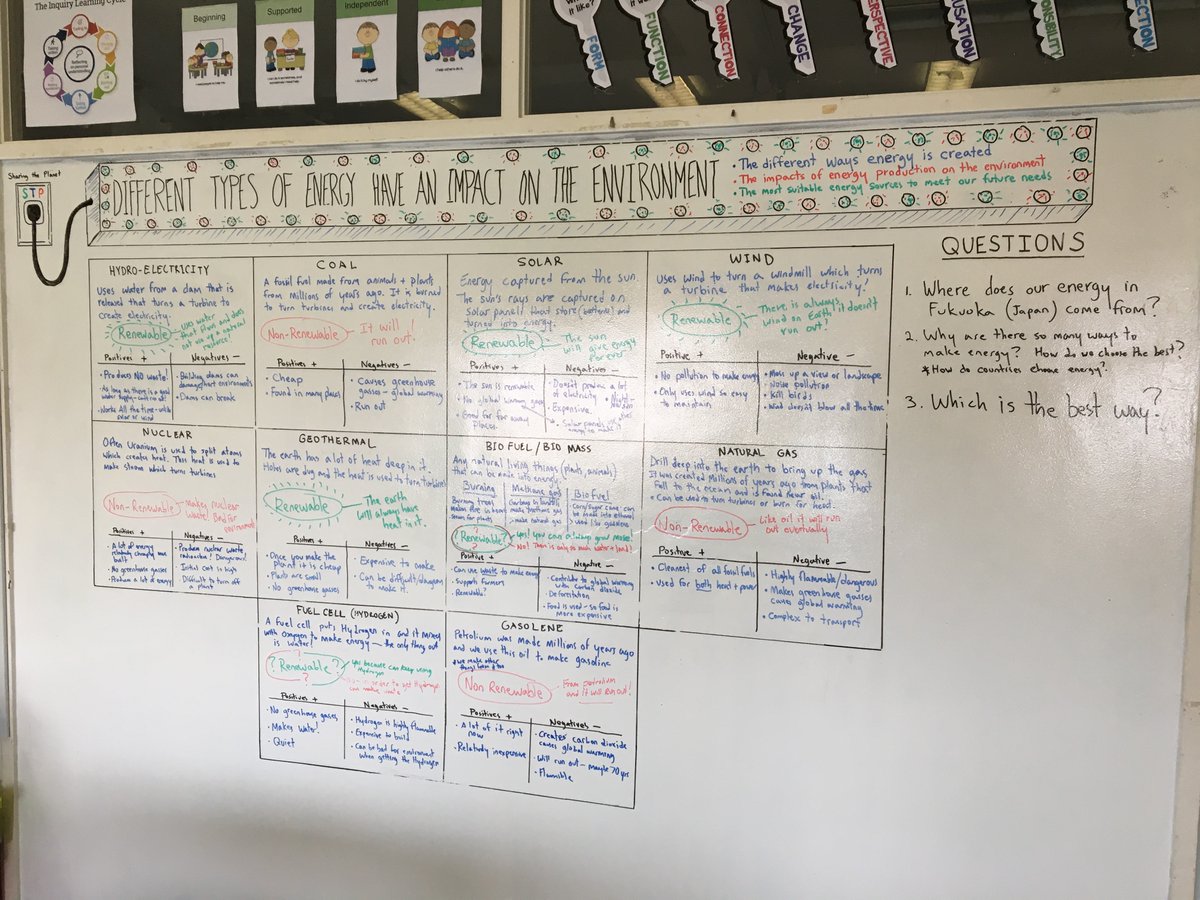 The Inquiry Learning Cycle
Beginning
Supported
Independent
FORM
FUNCTION
CONNECTION
CHANGE
Sharing the Planet
STP
DIFFERENT TYPES OF ENERGY HAVE AN IMPACT ON THE ENVIRONMENT
• The different ways energy is created
• The impacts of energy production on the environment
• The most suitable energy sources to meet our future needs
HYDRO-ELECTRICITY
Uses water from a dam that is
released that turns a turbine to
create electricity.
Renewable
Uses water
that flows and does
not use up a natural
Positives +
Negatives -
• Produces NO waste!
• As long as there is a good
water supply
• Works All the time - with
solar or wind
• Building dams can
damage/hurt environments
• Dams can break
COAL
A fossil fuel made from animals + plants
from millions of years ago. It is burned
to turn turbines and create electricity.
Non-Renewable
It will
run out!
Positives +
Negatives -
• Cheap
• Found in many places
• Causes greenhouse
gasses - global warming
• Run out
SOLAR
Energy captured from the sun
The sun's rays are captured on
Solar panels that store (batteries) and
turned into energy.
Renewable
The sun
will give energy
forever
Positives +
Negatives -
• The sun is renewable
• No global warming gases
• Good for far away
places.
• Doesn't produce a lot
of electricity
• Expensive
• Solar panels use
energy to make
WIND
Uses wind to turn a windmill which turns
a turbine that makes electricity!
Renewable
There is always
wind on Earth it doesn't
run out!
Positive +
Negative -
• No pollution to make energy
• Only uses wind so easy
to maintain
• Mess up a view or landscape
• Noise pollution
• Kill birds
• Wind doesn't blow all the time
NUCLEAR
Often Uranium is used to split atoms
which creates heat. This heat is used to
make steam which turn turbines
Non-Renewable
makes nuclear
waste! Bad for
environment
Positives +
Negatives -
• A lot of energy
relatively cheaply once
built
• No greenhouse gasses
• Produce a lot of energy
• Produce nuclear waste
radioactive! Dangerous!
• Initial cost is high
• Difficult to turn off
a plant
GEOTHERMAL
The earth has a lot of heat deep in it.
Holes are dug and the heat is used to turn turbines
Renewable
The earth
will always have
heat in it.
Positives +
Negatives -
• Once you make the
plant it is cheap
• Plants are small
• No greenhouse gasses
• Expensive to make
• Can be difficult/dangerous
to make it.
BIO FUEL / BIO MASS
Any natural living things (plants, animals)
that can be made into energy.
Burning
Methane gas
Bio fuel
Burning trees
makes fire in homes
steam for plants
Garbage in landfills
make methane gas
→ make natural gas
Corn/Sugar cane can
be made into ethanol
→ used like gasolene
?Renewable?
Yes! You can always grow more!
No! There is only so much water + land!
Positive +
Negative -
• Can use waste to make energy
• Supports farmers
• Renewable?
• Contribute to global warming
with carbon dioxide
• Deforestation
• Food is used - so food
is more expensive
NATURAL GAS
Drill deep into the earth to bring up the gas
It was created millions of years ago from plants that
fell to the ocean and is found near oil.
• Can be used to turn turbines or burn for heat.
Non-Renewable
Like oil it will run
out eventually
Positive +
Negative -
• Cleanest of all fossil fuels
• Used for both heat + power
• Highly flammable/dangerous
• Makes greenhouse gasses
causes global warming
• Complex to transport
FUEL CELL (HYDROGEN)
A fuel cell puts Hydrogen in and it mixes
with Oxygen to make energy - the only thing out
is water!
?Renewable?
?
yes because can keep using
Hydrogen
in order to get Hydrogen
can make waste
Positives +
Negatives -
• No greenhouse gases
• Makes Water!
• Quiet
• Hydrogen is highly flammable
• Expensive to build
• Can be bad for environment
when getting the Hydrogen
GASOLENE
Petrolium was made Millions of years ago
and we use this oil to make gasoline
Non Renewable
From petrolium
and it will run out!
Positives +
Negatives -
• A lot of it right
now
• Relatively inexpensive
• Creates carbon dioxide
causes global warming
• Will run out - maybe 70 yrs
• Flammible
QUESTIONS
1. Where does our energy in
Fukuoka (Japan) come from?
2. Why are there so many ways to
make energy? How do we choose the best?
* How do countries choose energy?
3. Which is the best way?